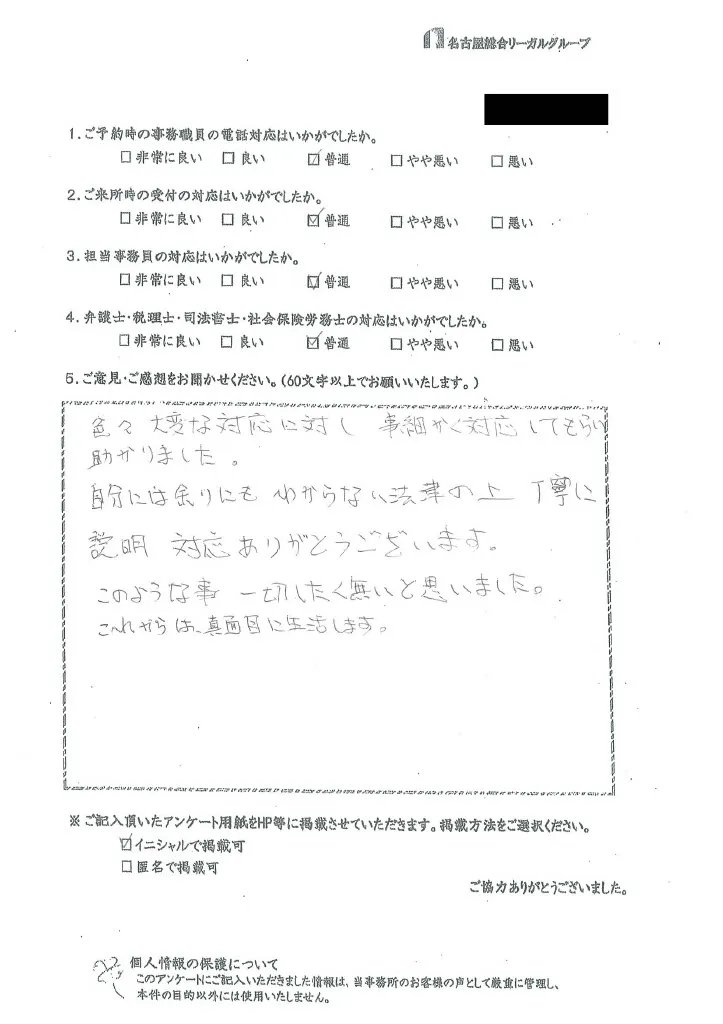 名古屋総合リーガルグループ
1.ご予約時の事務職員の電話対応はいかがでしたか。
☐ 非常に良い ☐ 良い ☑ 普通 ☐ やや悪い ☐ 悪い
2.ご来所時の受付の対応はいかがでしたか。
☐ 非常に良い ☐ 良い ☑ 普通 ☐ やや悪い ☐ 悪い
3.担当事務員の対応はいかがでしたか。
☐ 非常に良い ☐ 良い ☑ 普通 ☐ やや悪い ☐ 悪い
4.弁護士・税理士・司法書士・社会保険労務士の対応はいかがでしたか。
☐ 非常に良い ☐ 良い ☑ 普通 ☐ やや悪い ☐ 悪い
5.ご意見・ご感想をお聞かせください。(60文字以上でお願いいたします。)
色々 大変な対応に対し 事細かく対応してもらい
助かりました。
自分には余りにも わからない法律の上 丁寧に
説明 対応ありがとうございます。
このような事 一切したく無いと思いました。
これからは、真面目に生活します。
※ご記入頂いたアンケート用紙をHP等に掲載させていただきます。掲載方法をご選択ください。
☑イニシャルで掲載可
☐匿名で掲載可
ご協力ありがとうございました。
個人情報の保護について
このアンケートにご記入いただきました情報は、当事務所のお客様の声として厳重に管理し、
本件の目的以外には使用いたしません。